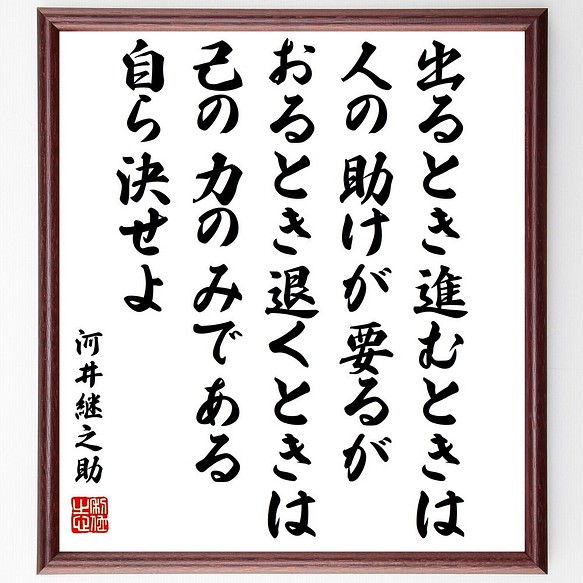 出るとき進むときは
人の助けが要るが
おるとき退くときは
己の力のみである
自ら決せよ
河井継之助